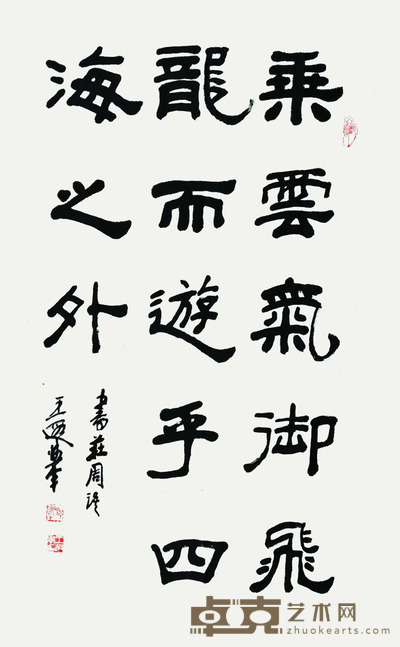 乘雲氣御飛
龍而遊乎四
海之外
書莊周語
卓克艺术网
zhuokearts.com